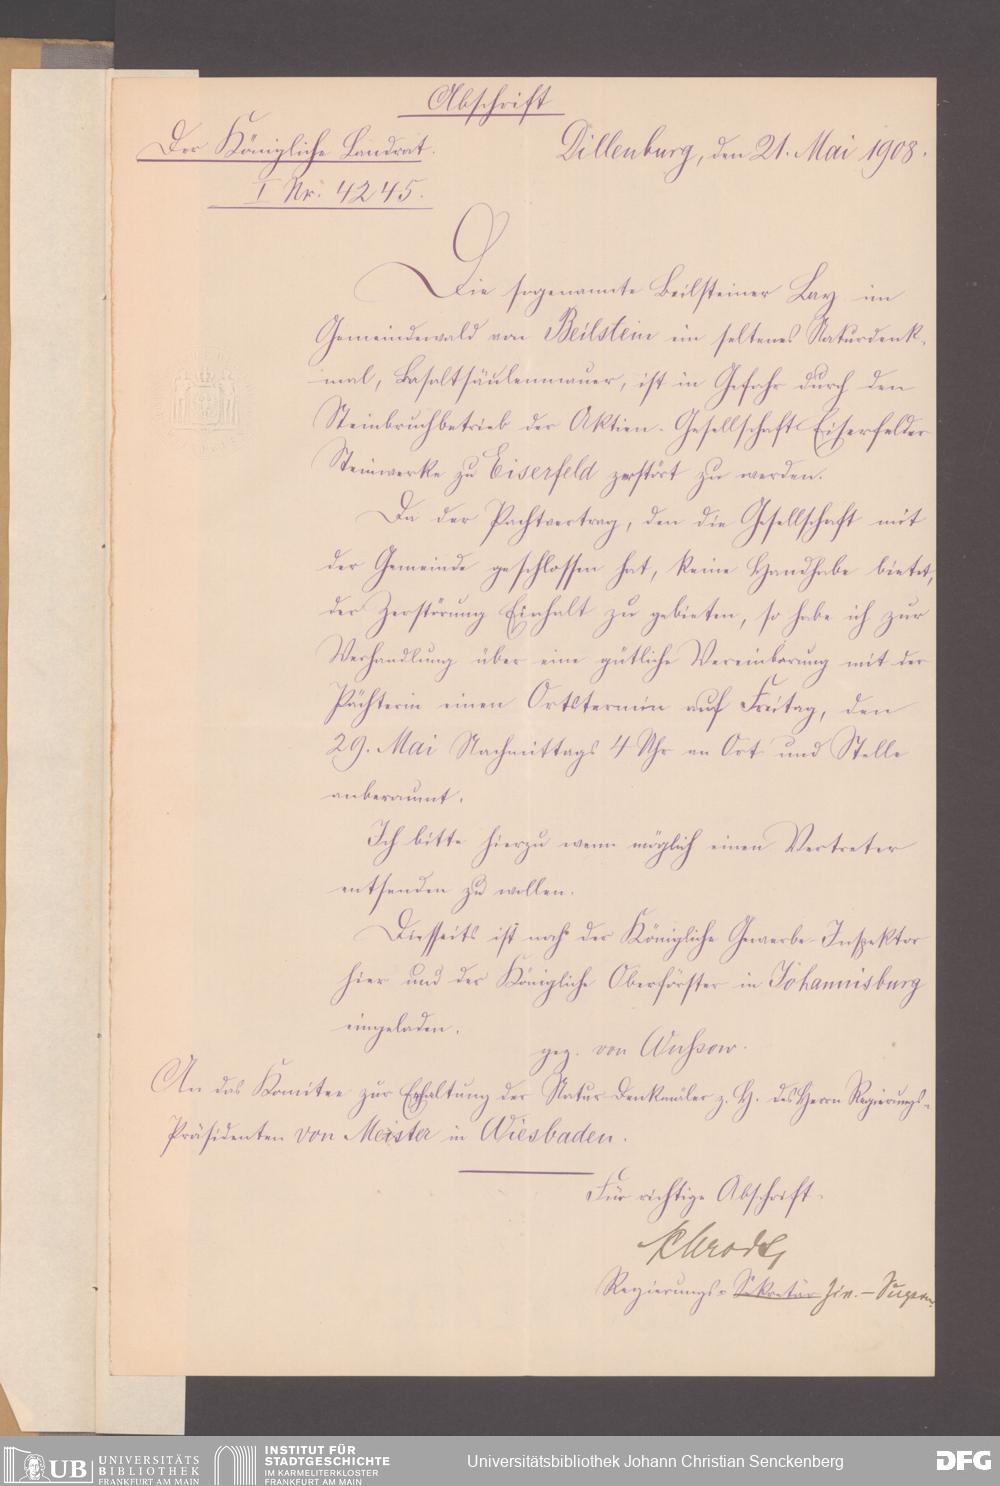 Abschrift
Der Königliche Landrat.
Dillenburg, den 21. Mai 1908.
I Nr. 4245.
Die sogenannte Beilsteiner Lay im
Gemeindewald von Beilstein ein seltenes Naturdenk-
mal, Basaltsäulenmauer, ist in Gefahr durch den
Steinbruchbetrieb der Aktien-Gesellschaft Eiserfelder
Steinwerke zu Eiserfeld zerstört zu werden.
Da der Pachtvertrag, den die Gesellschaft mit
der Gemeinde geschlossen hat, keine Handhabe bietet,
der Zerstörung Einhalt zu gebieten, so habe ich zur
Verhandlung über eine gütliche Vereinbarung mit der
Pächterin einen Ortstermin auf Freitag, den
29. Mai Nachmittags 4 Uhr an Ort und Stelle
anberaumt.
Ich bitte hierzu wenn möglich einen Vertreter
entsenden zu wollen.
Diesseits ist noch der Königliche Gewerbe-Inspektor
hier und der Königliche Oberförster in Johannisburg
eingeladen.
gez. von Wussow.
An das Komitee zur Erhaltung der Natur-Denkmäler z. H. des Herrn Regierungs-
Präsidenten von Meister in Wiesbaden.
Für richtige Abschrift.
Regierungs- Sekretär
UB UNIVERSITÄTS
BIBLIOTHEK
FRANKFURT AM MAIN
INSTITUT FÜR
STADTGESCHICHTE
IM KARMELITERKLOSTER
FRANKFURT AM MAIN
Universitätsbibliothek Johann Christian Senckenberg
DFG